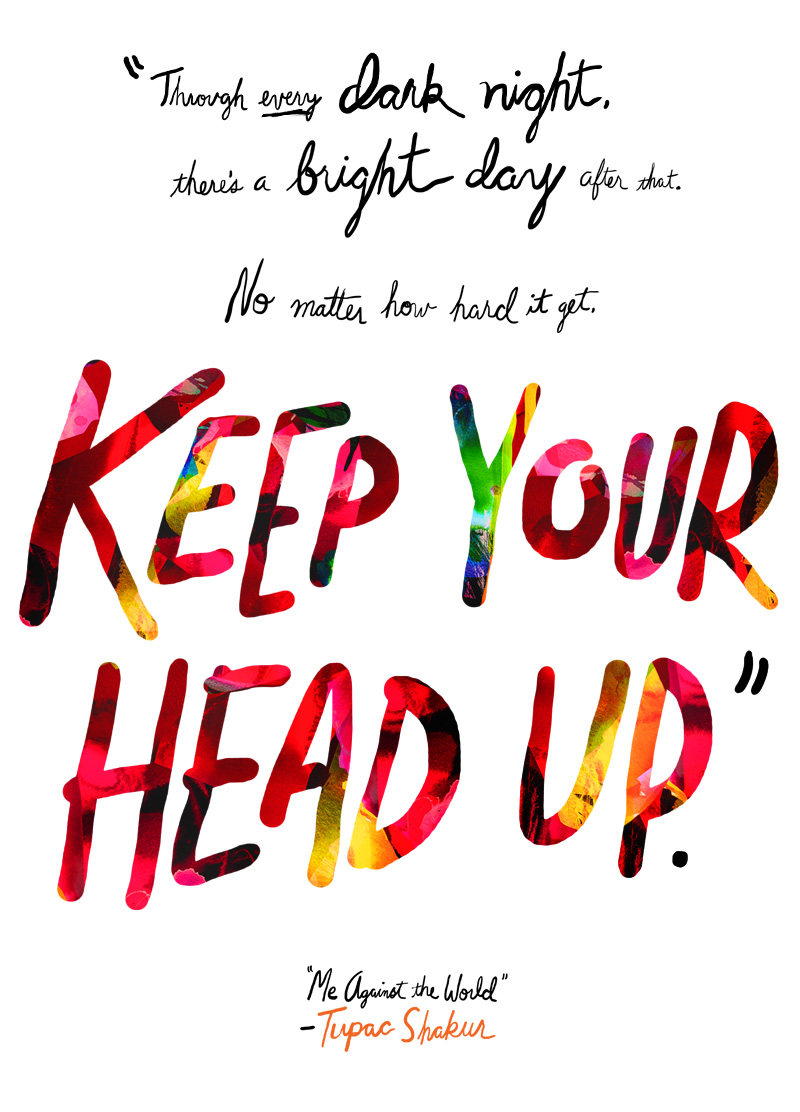 "Through every dark night,
there's a bright day after that.
No matter how hard it get,
KEEP YOUR
HEAD UP."
"Me Against the World"
-Tupac Shakur